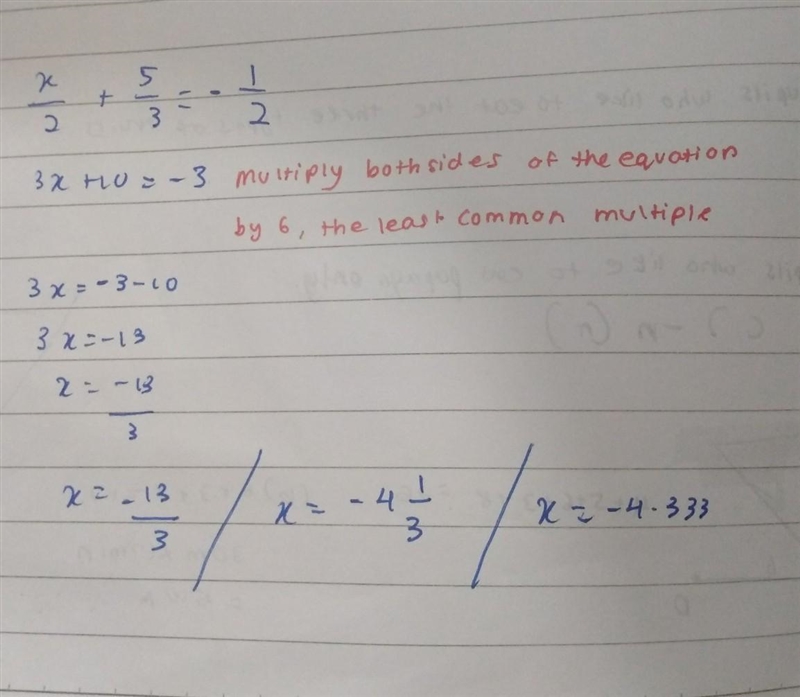 x/2 + 5/3 = - 1/2
3x +10 = -3 multiply both sides of the equation
by 6, the least common multiple
3x = -3-10
3x = -13
x = -13/3
x = -13/3 / x = -4 1/3 / x = -4.333